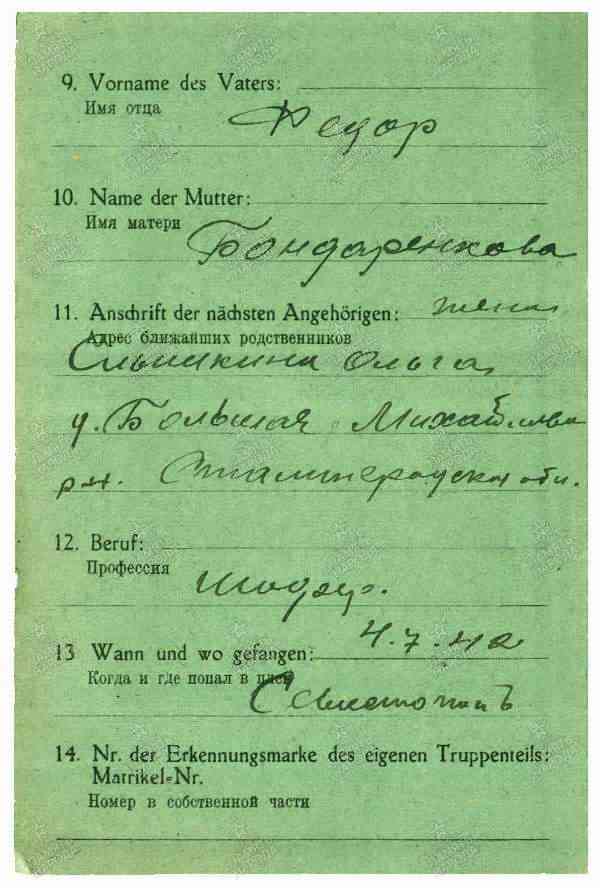 9. Vorname des Vaters:
Имя отца
Федор
10. Name der Mutter:
Имя матери
Бондаренкова
11. Anschrift der nächsten Angehörigen: жена
Адрес ближайших родственников
Ольга,
Большая
обл.
12. Beruf:
Профессия
13 Wann und wo gefangen: 4.7.42
Когда и где попал в плен
14. Nr. der Erkennungsmarke des eigenen Truppenteils:
Matrikel-Nr.
Номер в собственной части